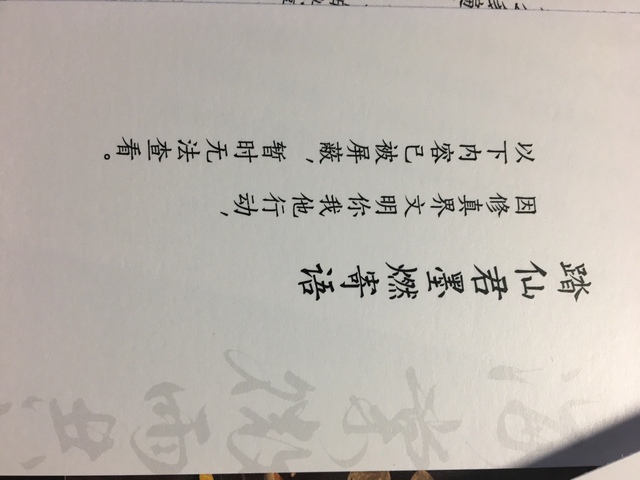 踏仙君墨燃寄语
因修真界文明你我他行动，
以下内容已被屏蔽，暂时无法查看。